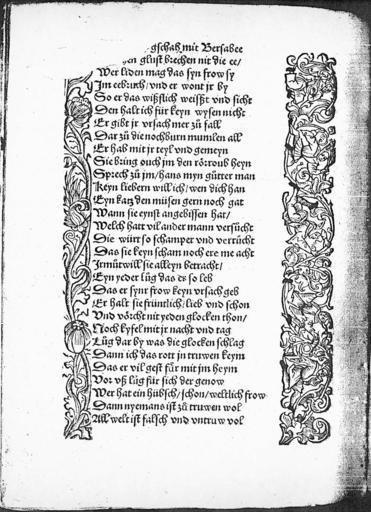 gschah mit Bersabee
gen glust brechen nit die ee/
Wer liden mag das syn frow sy
Im eebruch/ vnd er wont jr by
So er das wißlich weißt vnd sicht
Den halt ich für keyn wysen nicht
Er gibt jr vrsach mer zů fall
Dar zů die nochburn mumlen all
Er hab mit jr teyl vnd gemeyn
Sie bring ouch jm den roub heyn
Sprech zů jm/ hans myn gůtter man
Keyn liebern will ich/ wen dich han
Eyn katz den müsen gern noch gat
Wann sie eynst angebissen hat/
Welch hatt vil ander mann versücht
Die würt so schamper vnd verrücht
Das sie keyn scham noch ere me acht
Irn můtwill sie alleyn betracht/
Eyn yeder lůg das es so leb
Das er synr frow keyn vrsach geb
Er halt sie früntlich/ lieb vnd schon
Vnd vörcht nit yeden glocken thon/
Noch kyfel mit jr nacht vnd tag
Lůg dar by was die glocken schlag
Dann ich das rott jn truwen keym
Das er vil gest für mit jm heym
Vor vß lůg für sich der genow
Wer hat ein hübsch/ schon/ weltlich frow
Dann nyemans ist zů truwen wol
All welt ist falsch vnd vntruw vol